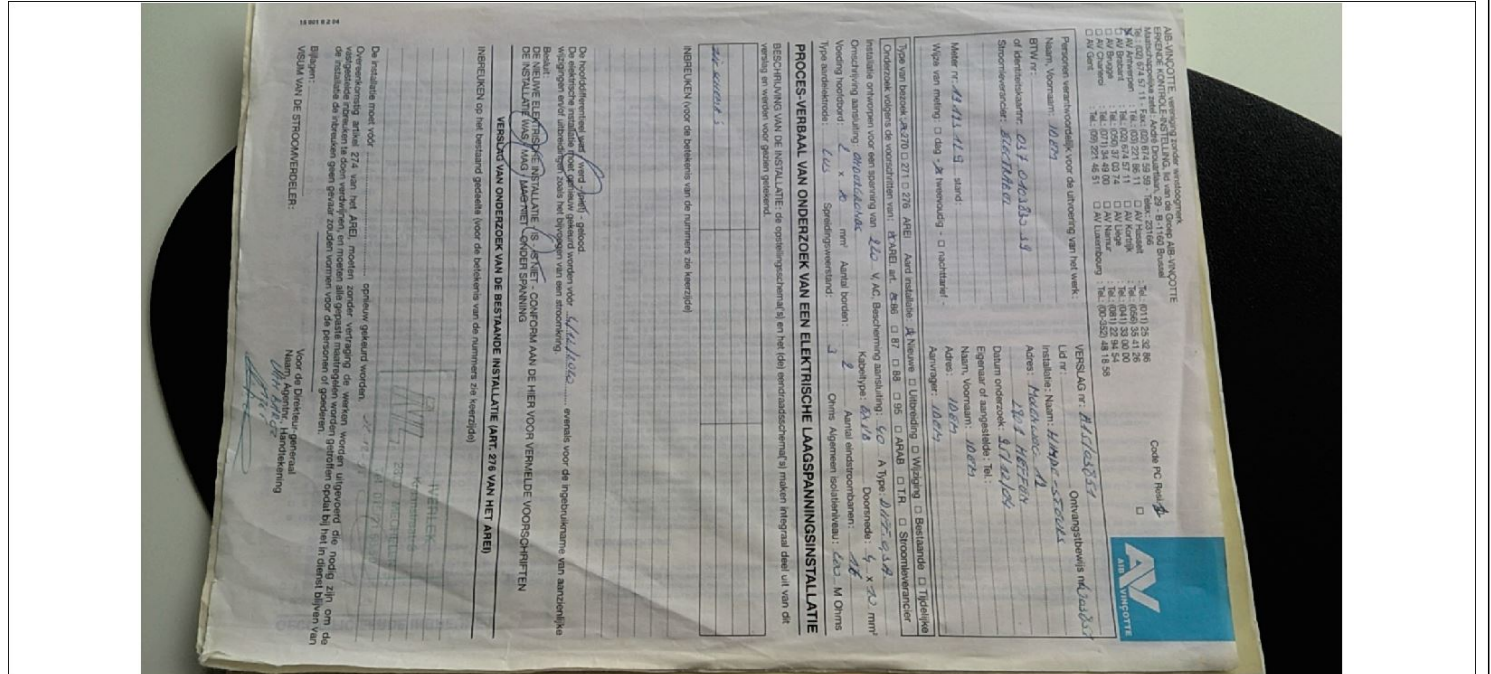 AIB-VINÇOTTE, vereniging zonder winstoogmerk
ERKENDE KONTROLE-INSTELLING, lid van de Groep AIB-VINÇOTTE
Maatschappelijke zetel: André Drouartlaan, 29 - B-1160 Brussel
Tel.: (02) 674 57 11 - Fax: (02) 674 59 59 - Telex: 23166
AV Antwerpen : Tel.: (03) 221 86 11 □ AV Hasselt : Tel.: (011) 25 32 86
□ AV Brabant : Tel.: (02) 674 57 11 □ AV Kortrijk : Tel.: (056) 35 41 26
□ AV Brugge : Tel.: (050) 37 03 74 □ AV Liège : Tel.: (041) 33 00 00
□ AV Charleroi : Tel.: (071) 34 49 00 □ AV Namur : Tel.: (081) 22 94 54
□ AV Gent : Tel.: (09) 221 46 51 □ AV Luxembourg : Tel.: (00-352) 48 18 58
Code PC Resi. □
AV
AIB VINÇOTTE
VERSLAG nr: Ontvangstbewijs nr.
Personen verantwoordelijk voor de uitvoering van het werk:
Naam, Voornaam: IDEM
BTW nr:
of identiteitskaartnr.: 037 0103830 39
Stroomleverancier: ELECTRABEL
Lid nr:
Installatie: Naam:
Adres: MOLENWEG
Datum onderzoek:
Eigenaar of aangestelde: Tel.:
Naam, Voornaam: IDEM
Adres: IDEM
Aanvrager: IDEM
Meter nr: stand:
Wijze van meting: □ dag - tweevoudig - □ nachttarief -
Type van bezoek: 270 □ 271 □ 276 AREI Aard installatie: Nieuwe □ Uitbreiding □ Wijziging □ Bestaande □ Tijdelijke
Onderzoek volgens de voorschriften van: AREI art. 86 □ 87 □ 88 □ 95 □ ARAB □ T.R. □ Stroomleverancier
Installatie ontworpen voor een spanning van 220 V, AC, Bescherming aansluiting: 40 A Type:
Omschrijving aansluiting: ONDERGRONDS Kabeltype: EXVB Doorsnede: 4 x 10 mm²
Voeding hoofdbord: x 10 mm² Aantal borden: 2 Aantal eindstroombanen: 16
Type aardelektrode: LUS Spreidingsweerstand: 3 Ohms Algemeen isolatieniveau: M Ohms
PROCES-VERBAAL VAN ONDERZOEK VAN EEN ELEKTRISCHE LAAGSPANNINGSINSTALLATIE
BESCHRIJVING VAN DE INSTALLATIE: de opstellingsschema('s) en het (de) eendraadsschema('s) maken integraal deel uit van dit
verslag en werden voor gezien getekend.
ZIE SCHEMA'S
INBREUKEN (voor de betekenis van de nummers zie keerzijde)
De hoofddifferentieel werd - (niet) - gelood.
De elektrische installatie moet opnieuw gekeurd worden vóór evenals voor de ingebruikname van aanzienlijke
wijzigingen en/of uitbreidingen zoals het bijvoegen van een stroomkring.
Besluit:
DE NIEUWE ELEKTRISCHE INSTALLATIE - IS - IS NIET - CONFORM AAN DE HIER VOOR VERMELDE VOORSCHRIFTEN
DE INSTALLATIE WAS / MAG / MAG NIET - ONDER SPANNING
VERSLAG VAN ONDERZOEK VAN DE BESTAANDE INSTALLATIE (ART. 276 VAN HET AREI)
INBREUKEN op het bestaand gedeelte (voor de betekenis van de nummers zie keerzijde)
IVERLEK
De installatie moet vóór opnieuw gekeurd worden.
Overeenkomstig artikel 274 van het AREI, moeten zonder vertraging de werken worden uitgevoerd die nodig zijn om de
vastgestelde inbreuken te doen verdwijnen, en moeten alle gepaste maatregelen worden getroffen opdat bij het in dienst blijven van
de installatie de inbreuken geen gevaar zouden vormen voor de personen of goederen.
Bijlagen:
VISUM VAN DE STROOMVERDELER:
Voor de Direkteur-generaal
Naam, Agentnr., Handtekening